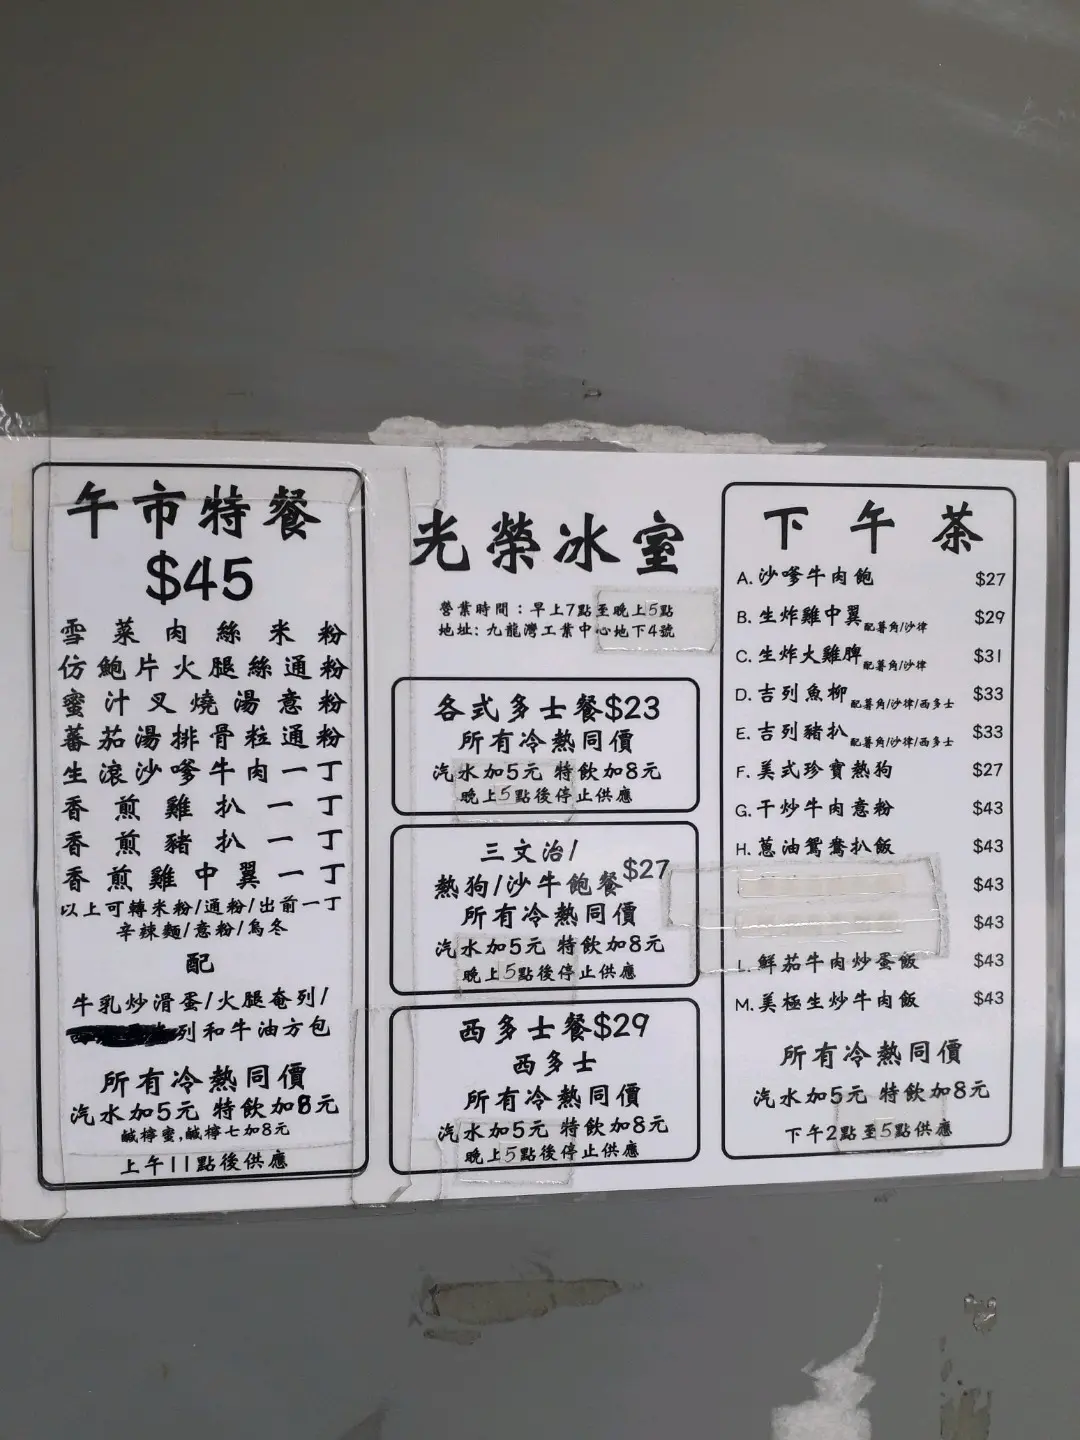 午市特餐
$45
雪菜肉絲米粉
仿鮑片火腿絲通粉
蜜汁叉燒湯意粉
蕃茄湯排骨粒通粉
生滾沙嗲牛肉一丁
香煎雞扒一丁
香煎豬扒一丁
香煎雞中翼一丁
以上可轉米粉/通粉/出前一丁
辛辣麵/意粉/烏冬
配
牛乳炒滑蛋/火腿奄列/
列和牛油方包
所有冷熱同價
汽水加5元 特飲加8元
鹹檸蜜,鹹檸七加8元
上午11點後供應
光榮冰室
營業時間：早上7點至晚上5點
地址: 九龍灣工業中心地下4號
各式多士餐$23
所有冷熱同價
汽水加5元 特飲加8元
晚上5點後停止供應
三文治/
熱狗/沙牛飽餐$27
所有冷熱同價
汽水加5元 特飲加8元
晚上5點後停止供應
西多士餐$29
西多士
所有冷熱同價
汽水加5元 特飲加8元
晚上5點後停止供應
下午茶
A. 沙嗲牛肉飽 $27
B. 生炸雞中翼配薯角/沙律 $29
C. 生炸大雞脾配薯角/沙律 $31
D. 吉列魚柳配薯角/沙律/西多士 $33
E. 吉列豬扒配薯角/沙律/西多士 $33
F. 美式珍寶熱狗 $27
G. 干炒牛肉意粉 $43
H. 蔥油鴛鴦扒飯 $43
$43
$43
L. 鮮茄牛肉炒蛋飯 $43
M. 美極生炒牛肉飯 $43
所有冷熱同價
汽水加5元 特飲加8元
下午2點至5點供應